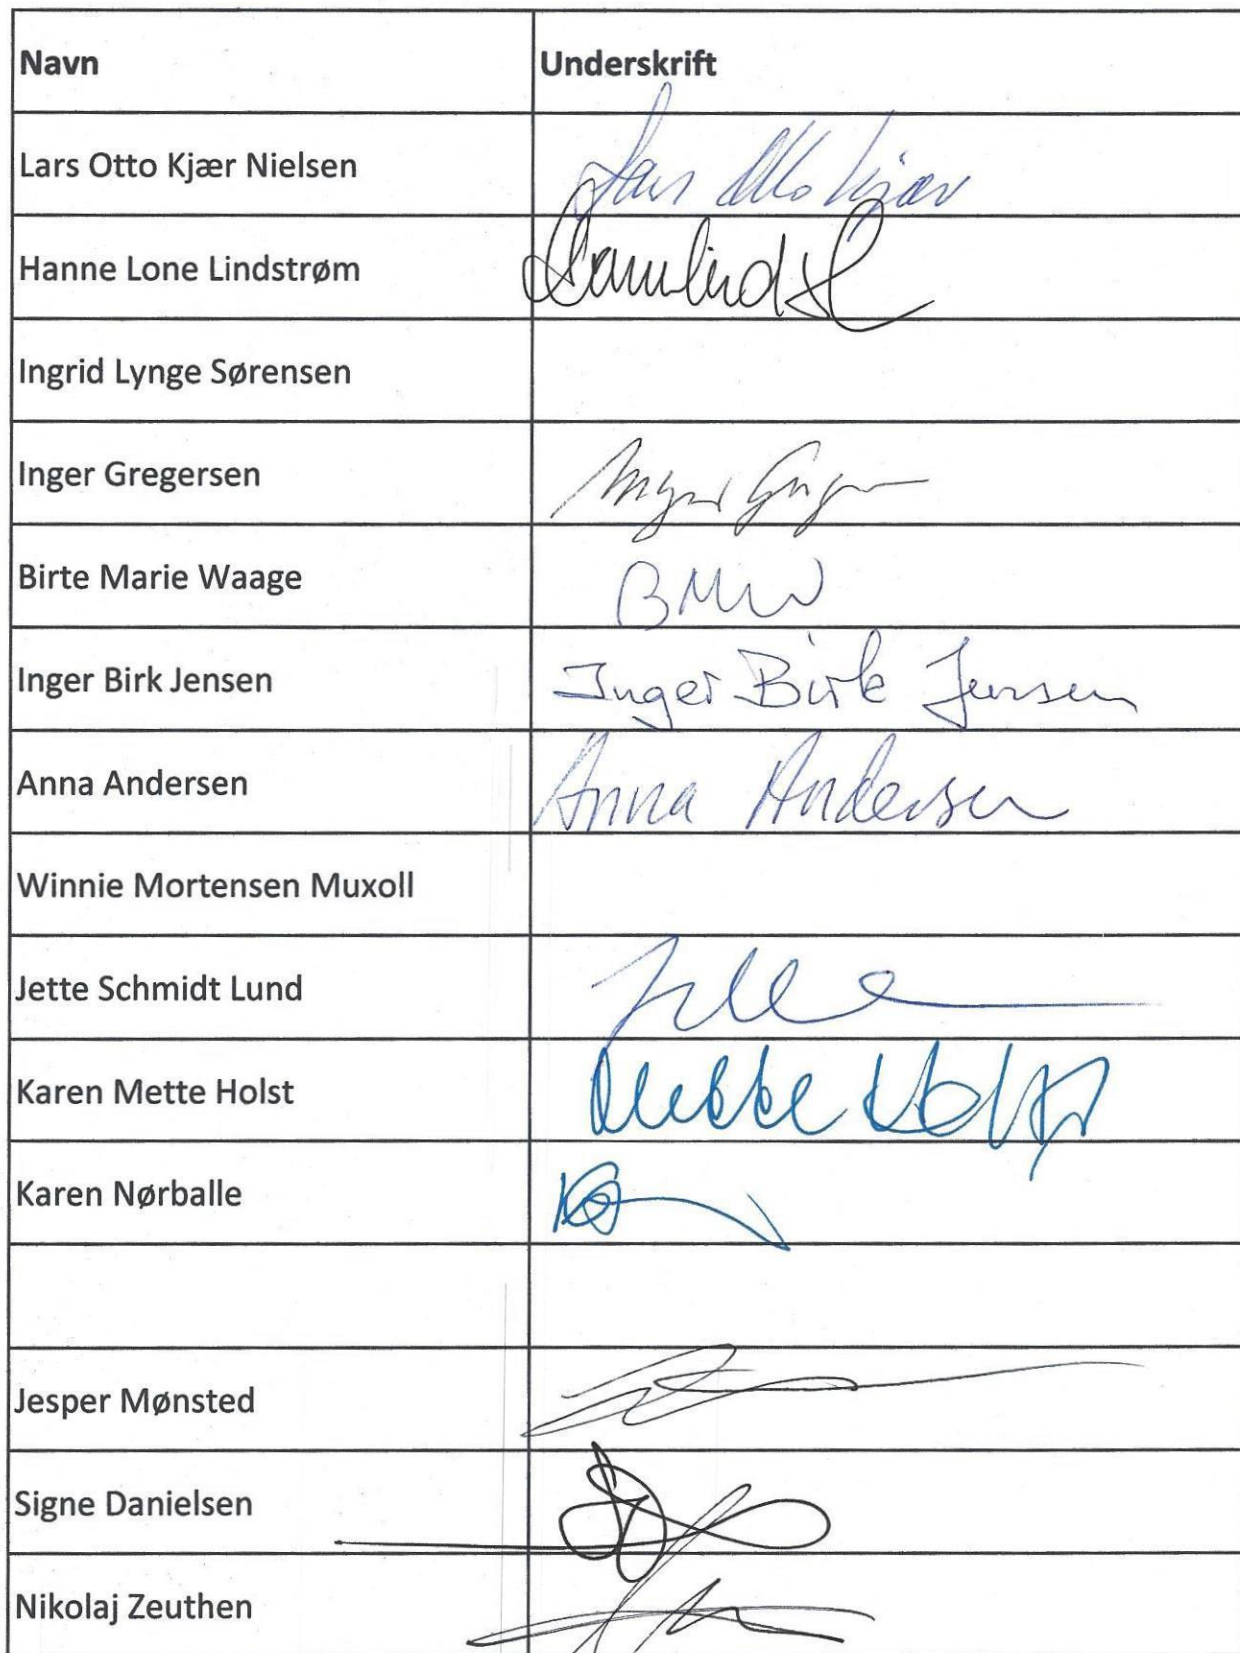 Navn Underskrift
Lars Otto Kjær Nielsen Lars Otto Kjær
Hanne Lone Lindstrøm
Ingrid Lynge Sørensen
Inger Gregersen Inger
Birte Marie Waage BMW
Inger Birk Jensen Inger Birk Jensen
Anna Andersen Anna Andersen
Winnie Mortensen Muxoll
Jette Schmidt Lund
Karen Mette Holst Mette Holst
Karen Nørballe
Jesper Mønsted
Signe Danielsen
Nikolaj Zeuthen